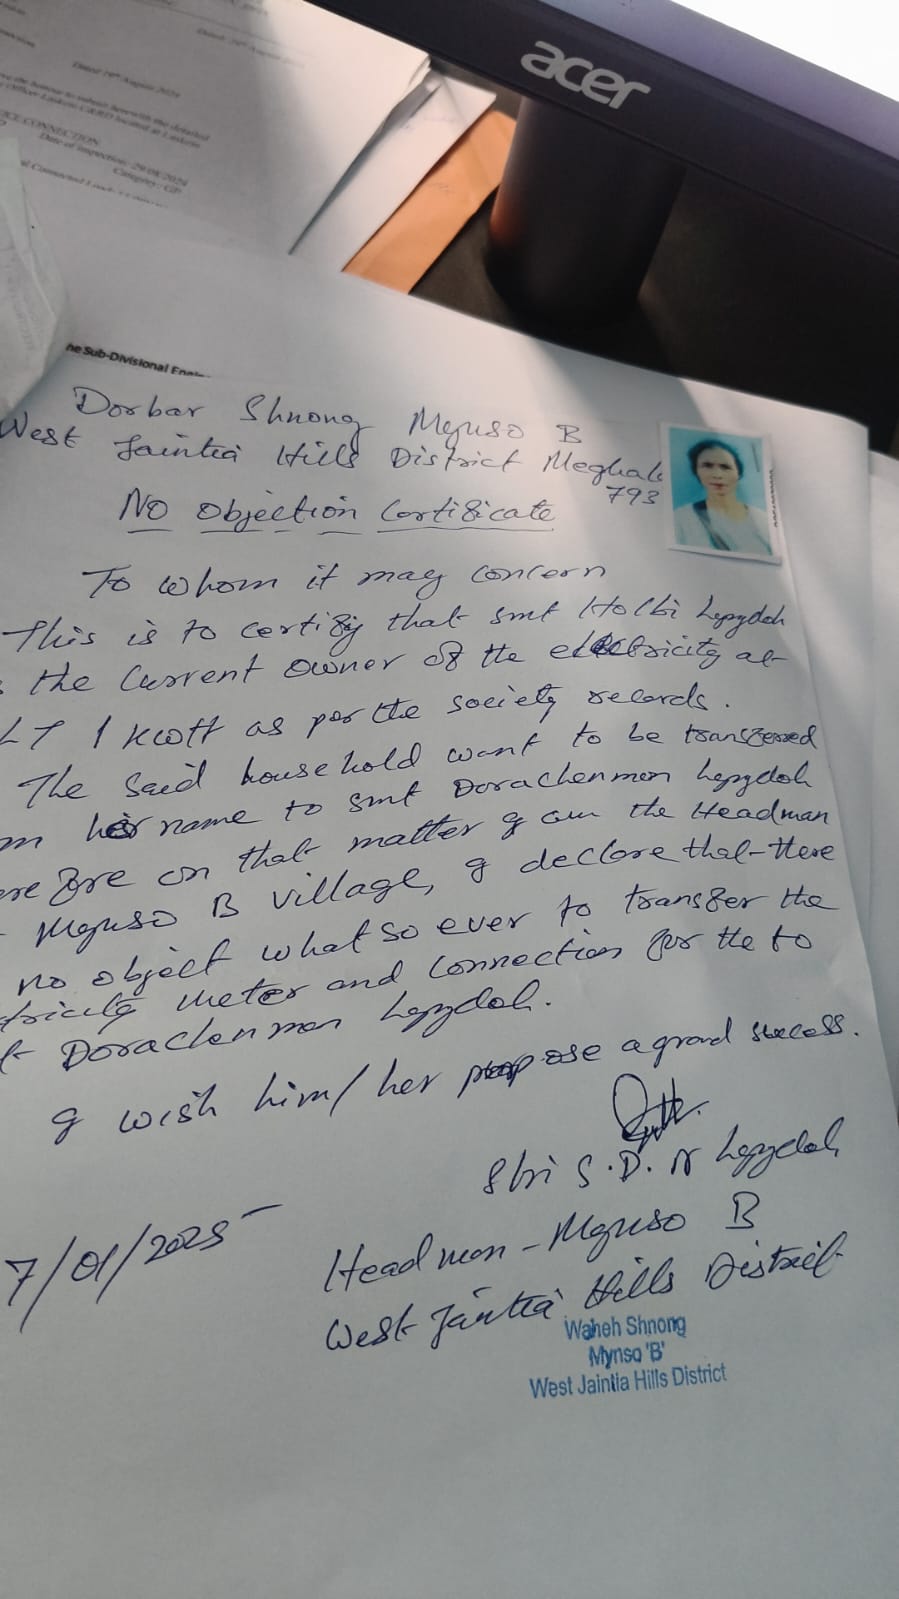 acer
Dated 19th August 2024
SERVICE CONNECTION
Date of inspection: 29/08/2024
Category: GP
he Sub-Divisional Engin
Dorbar Shnong Mynso B
West Jaintia Hills District Meghal
793
No Objection Certificate
To whom it may concern
This is to certify that smt Holbi Lapydoh
the Current owner of the electricity at
LT 1 kwtt as per the society records.
The said household want to be transfered
m her name to smt Dorachenmon Lapydoh
ere fore on that matter I am the Headman
Mynso B village, I declare that there
no object what so ever to transfer the
tricity meter and connection for the to
t Dorachenmon Lapydoh.
I wish him/her purpose a grand success.
Shri S.D. N Lapydoh
7/01/2025
Headman - Mynso B
West Jaintia Hills District
Waheh Shnong
Mynso 'B'
West Jaintia Hills District